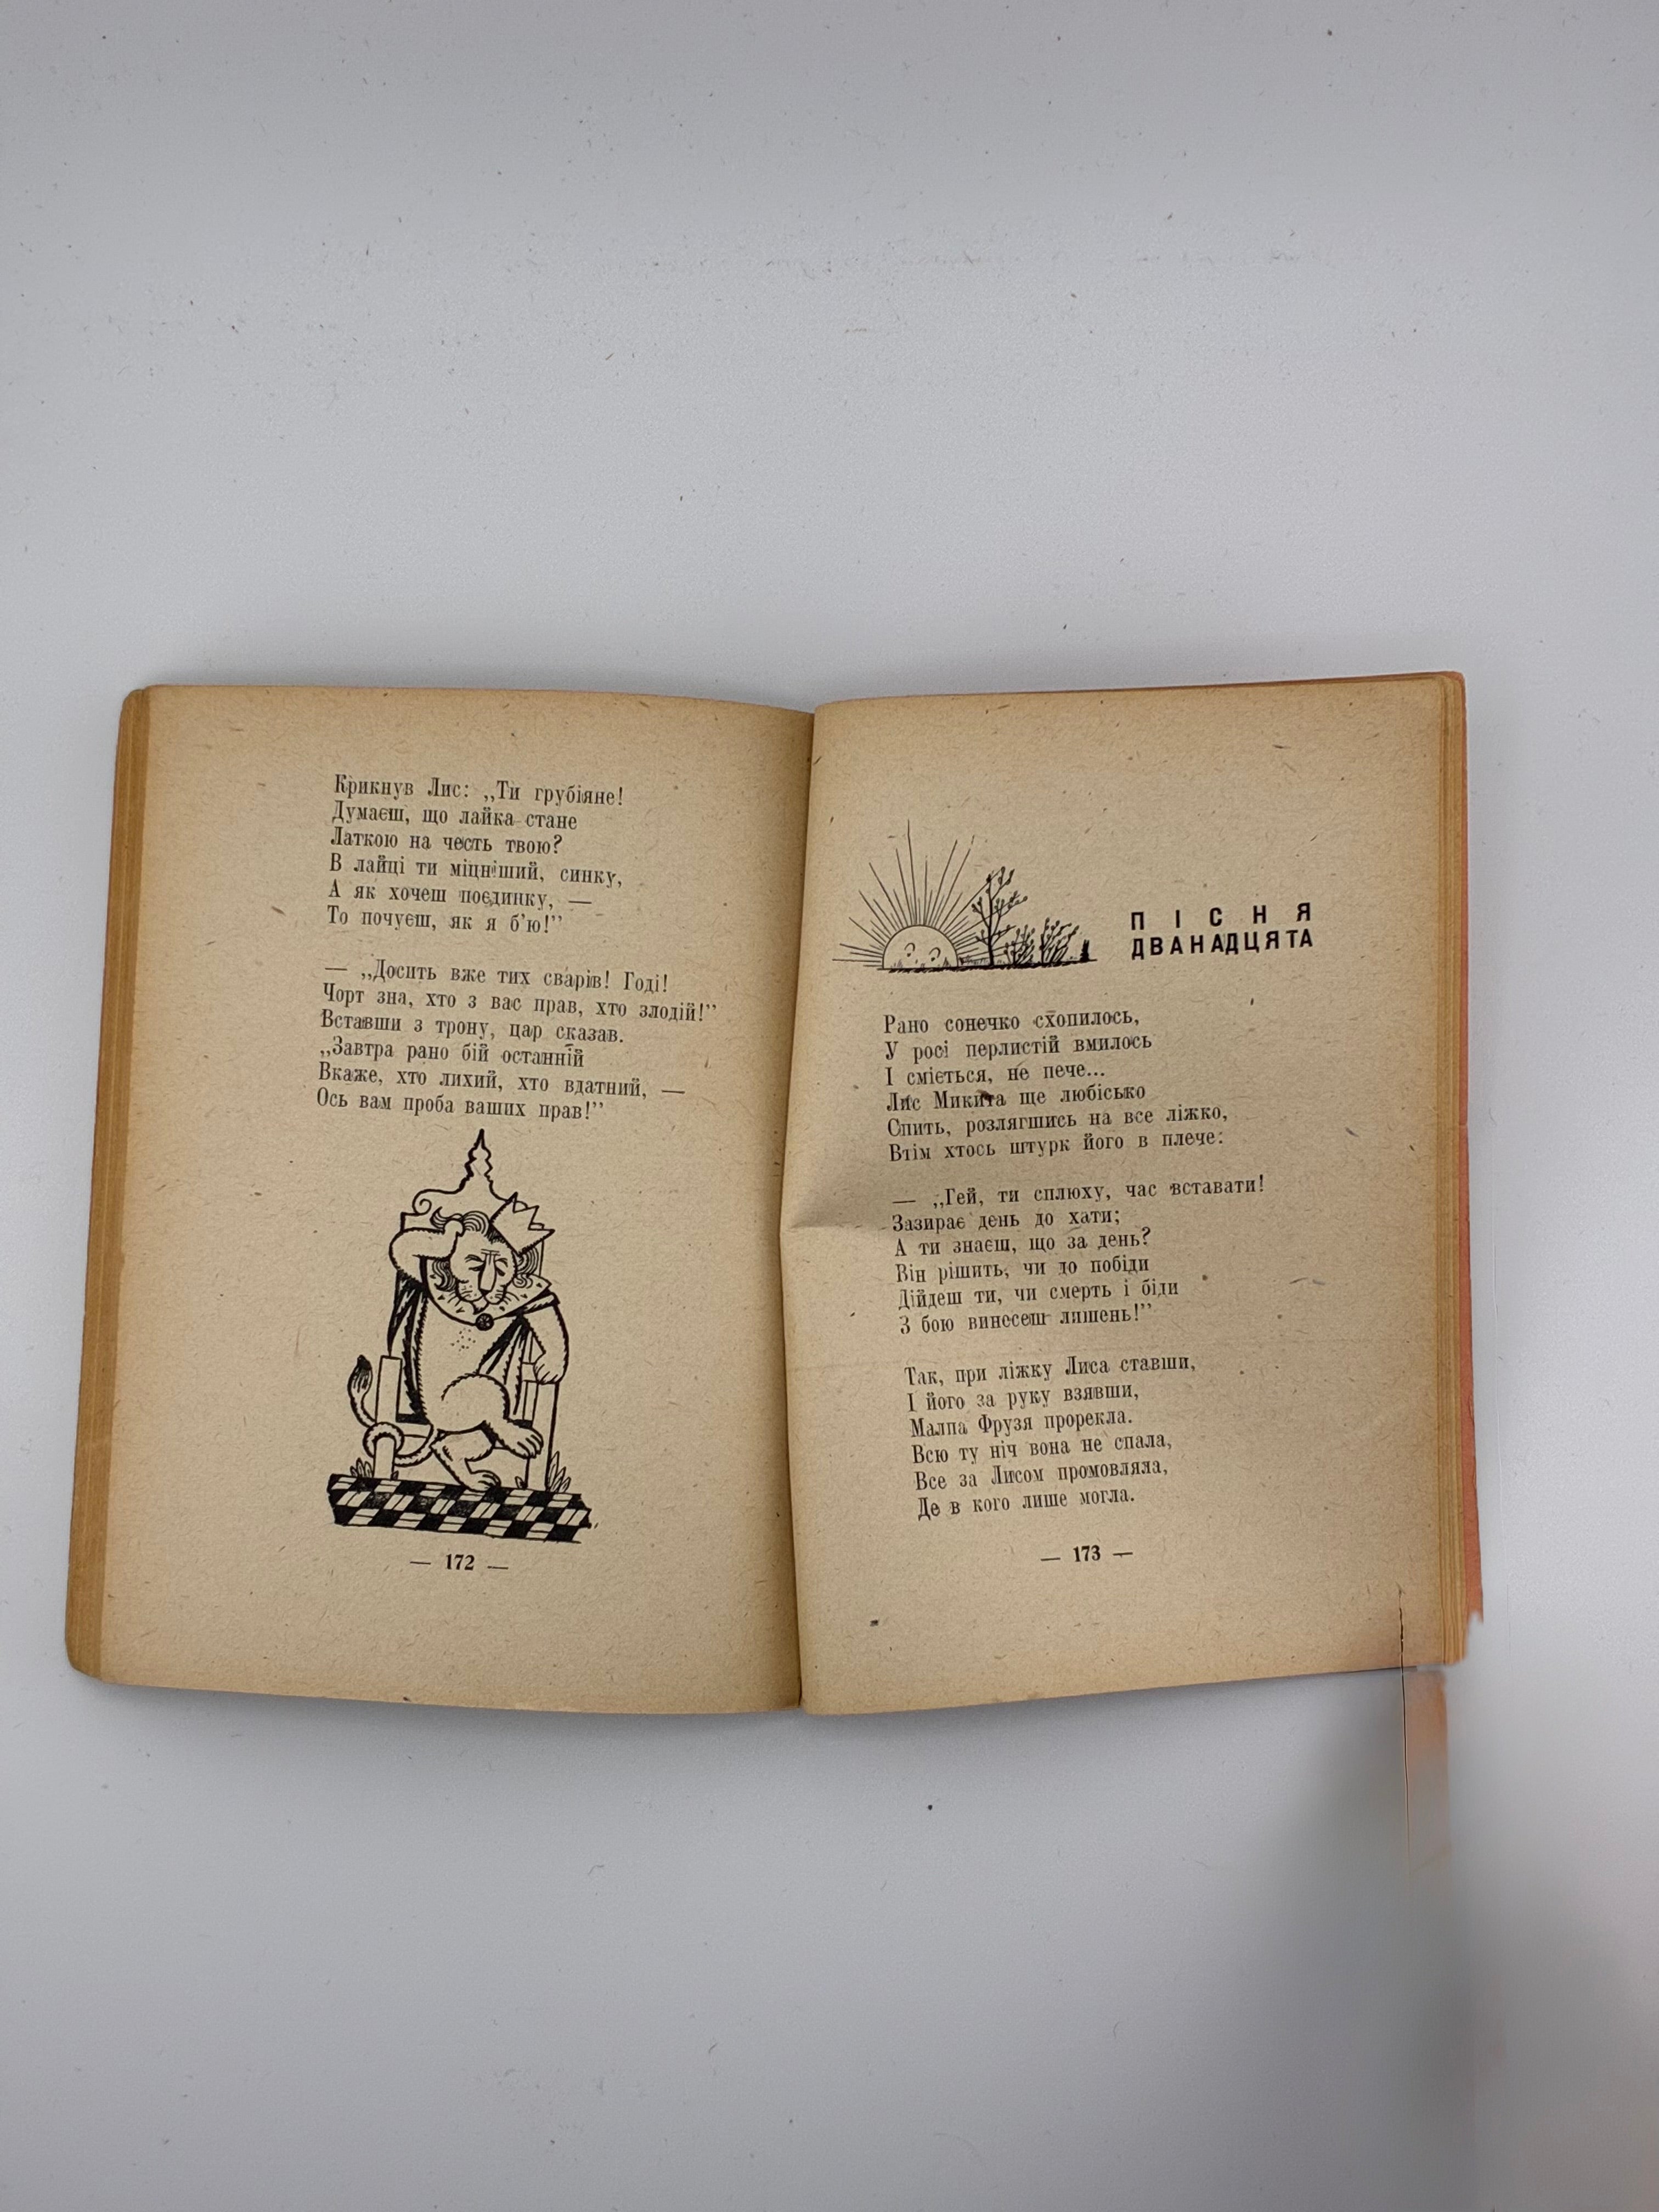 Крикнув Лис: „Ти грубіяне!
Думаєш, що лайка стане
Латкою на честь твою?
В лайці ти міцніший, синку,
А як хочеш поєдинку, —
То почуєш, як я б'ю!”
— „Досить вже тих сварів! Годі!
Чорт зна, хто з вас прав, хто злодій!”
Вставши з трону, цар сказав.
„Завтра рано бій останній
Вкаже, хто лихий, хто вдатний, —
Ось вам проба ваших прав!”
— 172 —
ПІСНЯ
ДВАНАДЦЯТА
Рано сонечко схопилось,
У росі перлистій вмилось
І сміється, не пече...
Лис Микита ще любісько
Спить, розлягшись на все ліжко,
Втім хтось штурк його в плече:
— „Гей, ти сплюху, час вставати!
Зазирає день до хати;
А ти знаєш, що за день?
Він рішить, чи до побіди
Дійдеш ти, чи смерть і біди
З бою винесеш лишень!”
Так, при ліжку Лиса ставши,
І його за руку взявши,
Малпа Фрузя прорекла.
Всю ту ніч вона не спала,
Все за Лисом промовляла,
Де в кого лише могла.
— 173 —